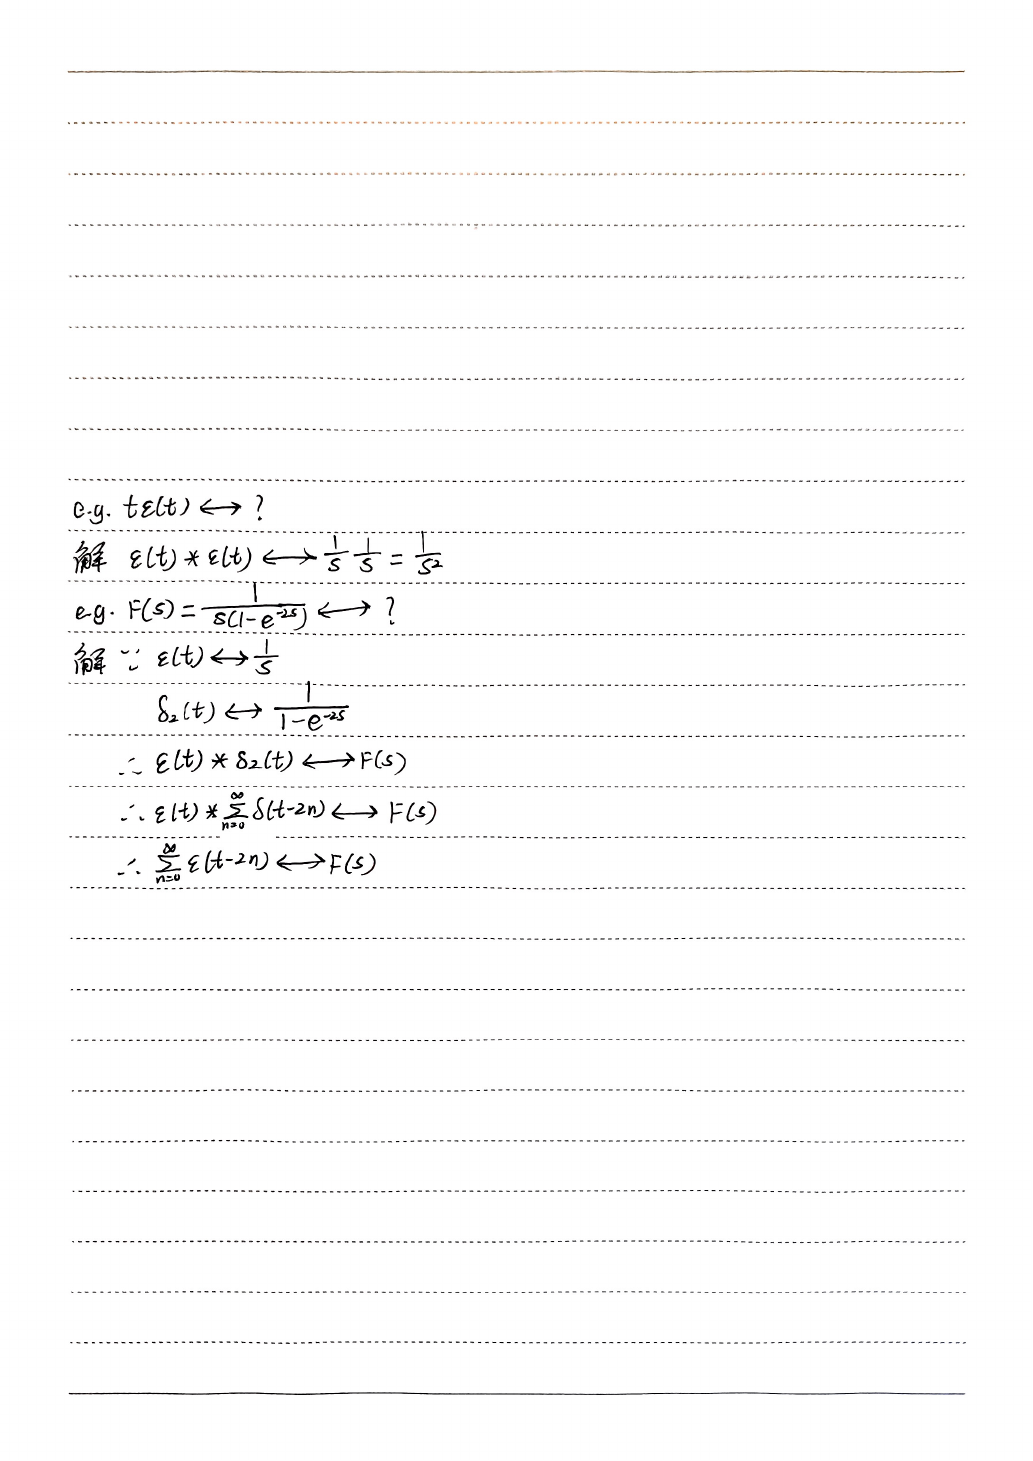 e.g. tε(t) ⟷ ?
解 ε(t) * ε(t) ⟷ 1/s 1/s = 1/s²
e.g. F(s) = 1/(s(1-e^{-2s})) ⟷ ?
解 ∵ ε(t) ⟷ 1/s
δ₂(t) ⟷ 1/(1-e^{-2s})
∴ ε(t) * δ₂(t) ⟷ F(s)
∴ ε(t) * ∑_{n=0}^{∞} δ(t-2n) ⟷ F(s)
∴ ∑_{n=0}^{∞} ε(t-2n) ⟷ F(s)